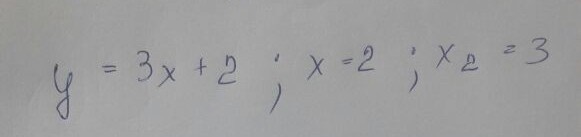 y = 3x + 2 ; x = 2 ; x₂ = 3